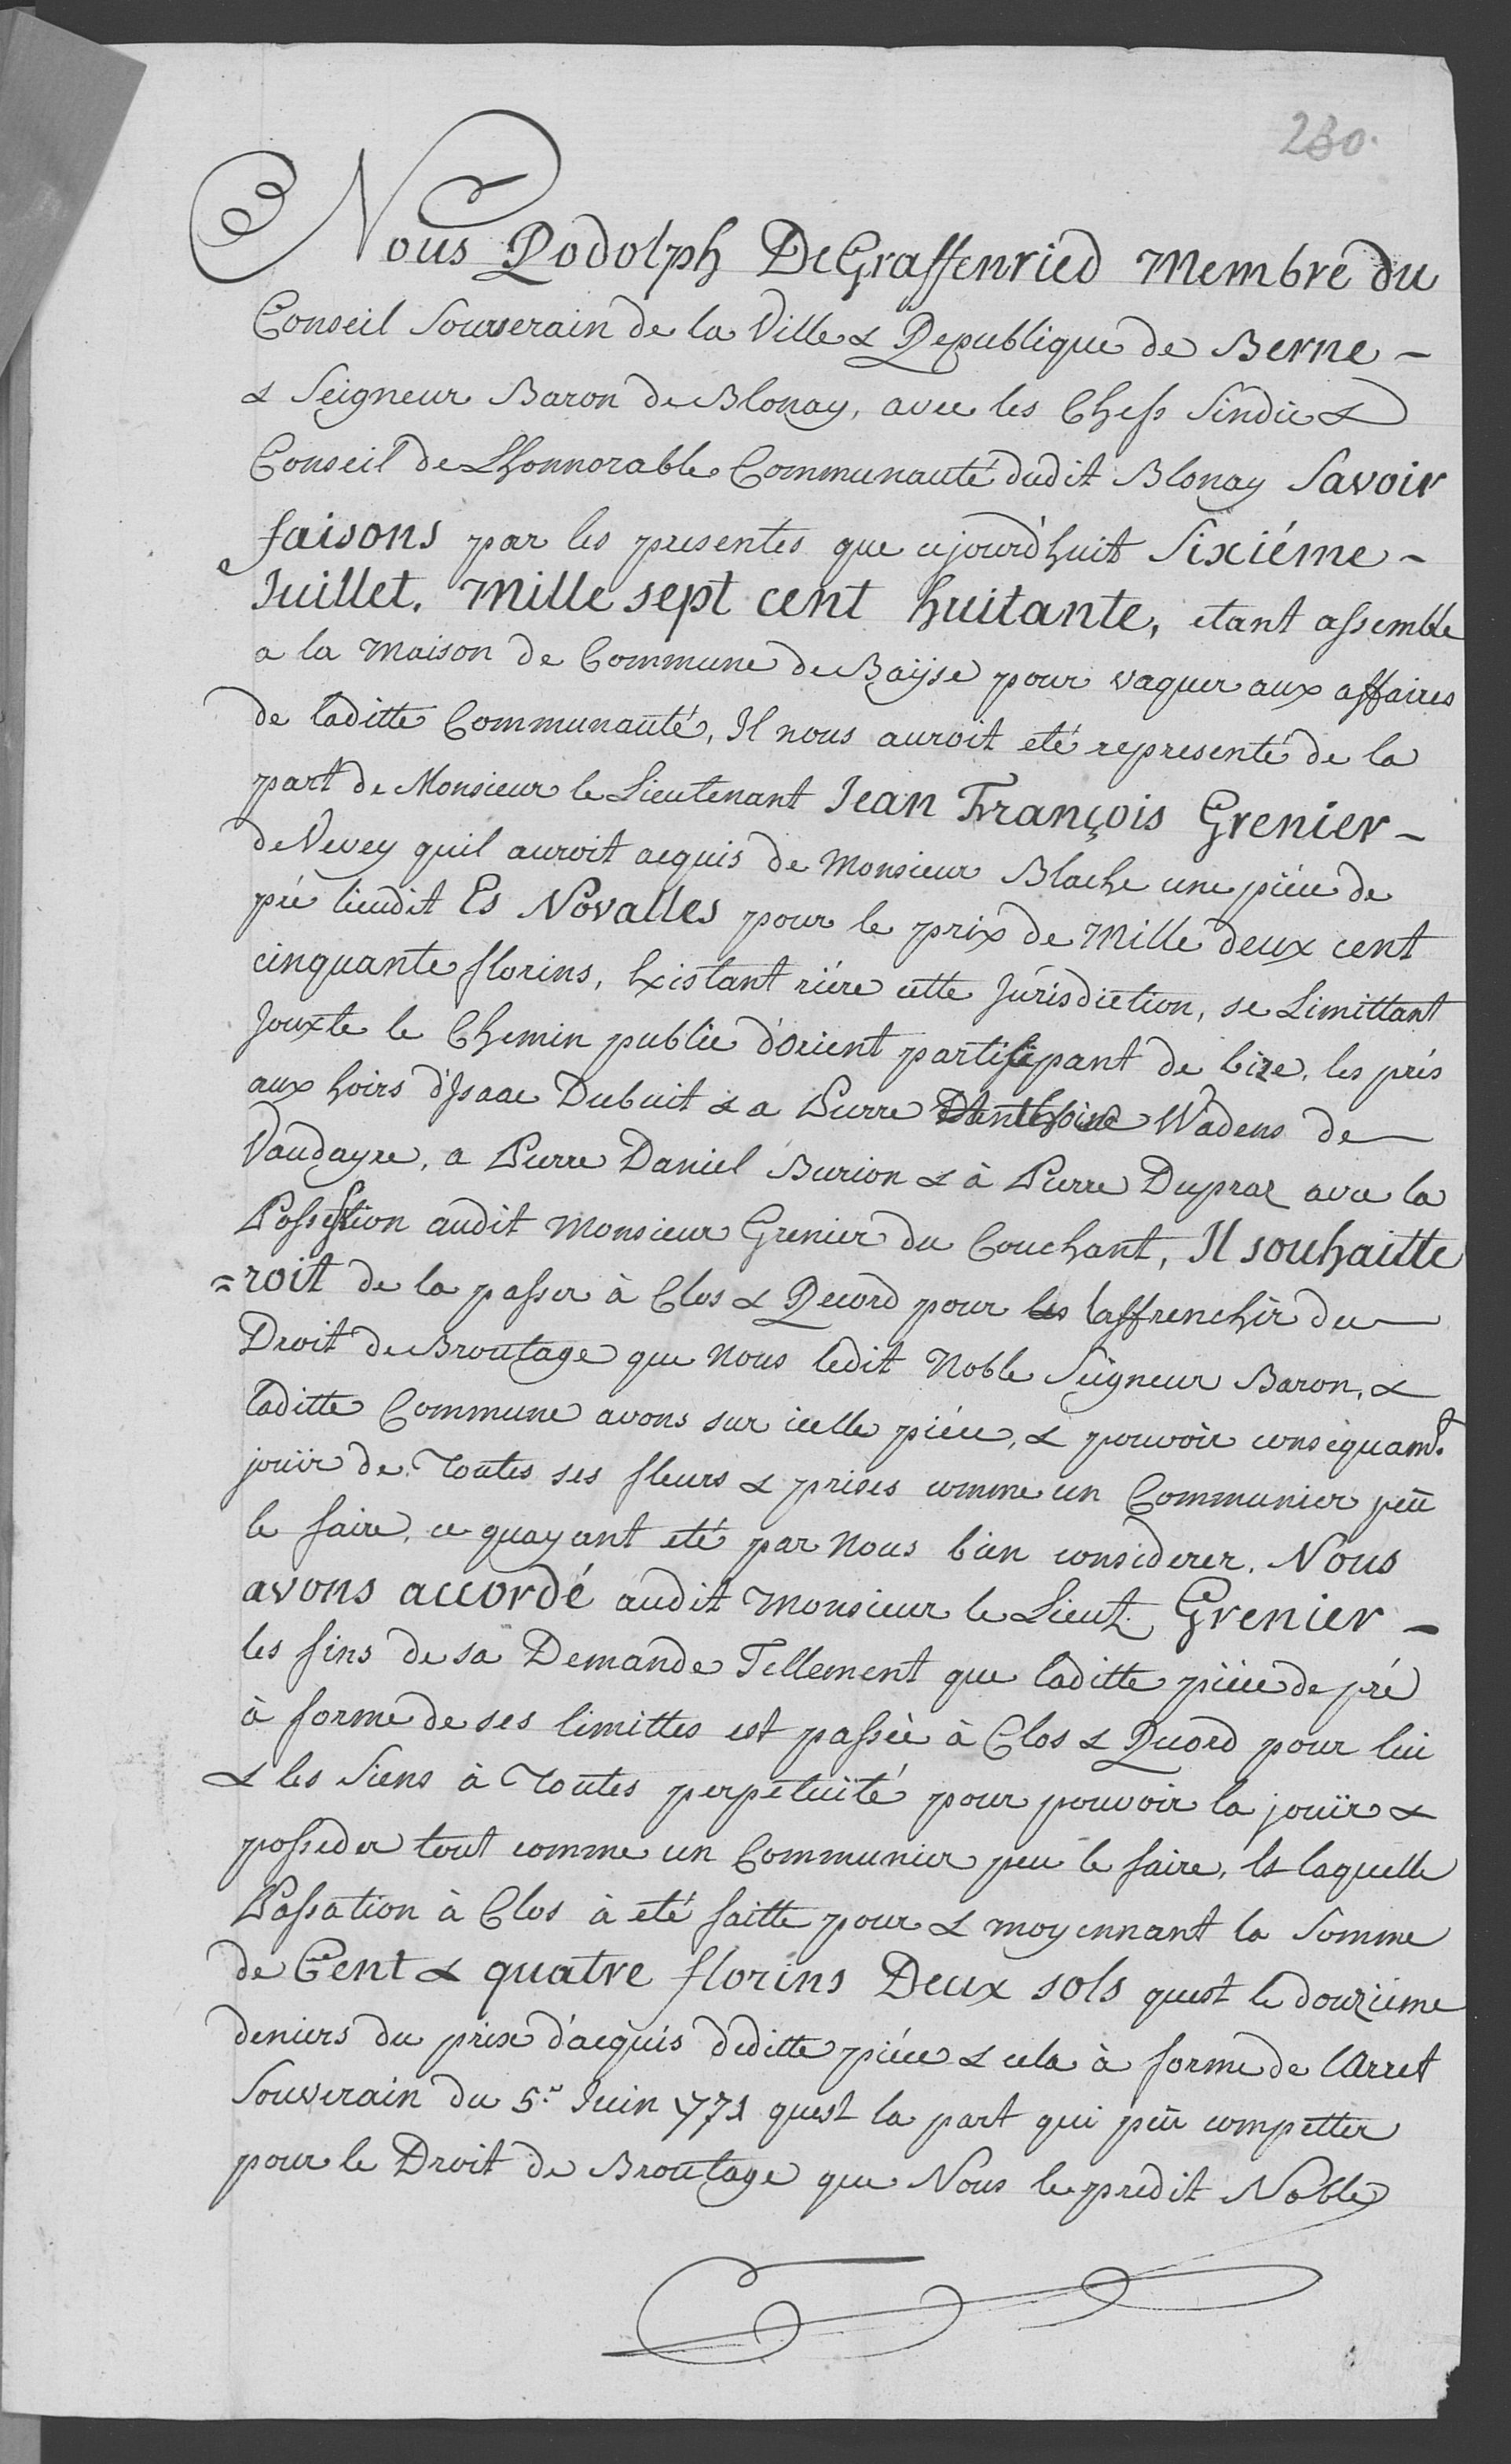 230.
Nous Rodolph DeGraffenried Membre du
Conseil Souverain de la Ville & Republique de Berne -
& Seigneur Baron de Blonay, avec les Chefs Sindic &
Conseil de Lhonnorable Communauté dudit Blonay Savoir
faisons par les presentes que cejourd'huit Sixiéme -
Juillet, Mille sept cent huitante, etant assemblé
a la Maison de Commune de Baÿse pour vaquer aux affaires
de laditte Communauté, Il nous auroit eté representé de la
part de Monsieur le Lieutenant Jean François Grenier -
de Vevey quil auroit acquis de Monsieur Blache une piéce de
pré lieudit Es Novalles pour le prix de Mille deux cent
cinquante florins, Existant riére cette Jurisdiction, se Limittant
Jouxte le Chemin public d'orient participant de bize, les prés
aux hoirs d'Isaac Dubuit & a Pierre Wadens de
Vaudayre, a Pierre Daniel Burion & à Pierre Dupraz avec la
Possession audit Monsieur Grenier du Couchant, Il souhaitte
=roit de la passer à Clos & Record pour laffrenchir du
Droit de Broutage que Nous ledit Noble Seigneur Baron, &
laditte Commune avons sur icelle piéce, & pouvoir conséquamt.
jouir de Toutes ses fleurs & prises comme un Communier peu
le faire, ce quayant eté par Nous bien considerer. Nous
avons accordé audit Monsieur le Lieut. Grenier -
les fins de sa Demande Tellement que laditte piéce de pré
à forme de ses limittes est passée à Clos & Record pour lui
& les Siens à Toutes perpetuité pour pouvoir la jouïr &
posseder tout comme un Communier peu le faire, Et laquelle
Passation à Clos à eté faitte pour & moyennant la Somme
de Cent & quatre florins Deux sols quest le douziéme
deniers du prix d'acquis deditte piéce & cela à forme de l'Arret
Souverain du 5e. Juin 1771 quest la part qui peu competter
pour le Droit de Broutage que Nous le predit Noble